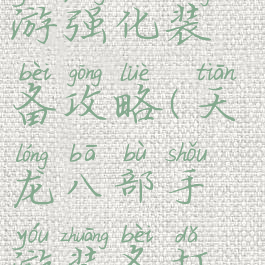 游强化装
bèi gōng lüè tiān
备攻略(天
lóng bā bù shǒu
龙八部手
yóu zhuāng bèi dǎ
游装备打